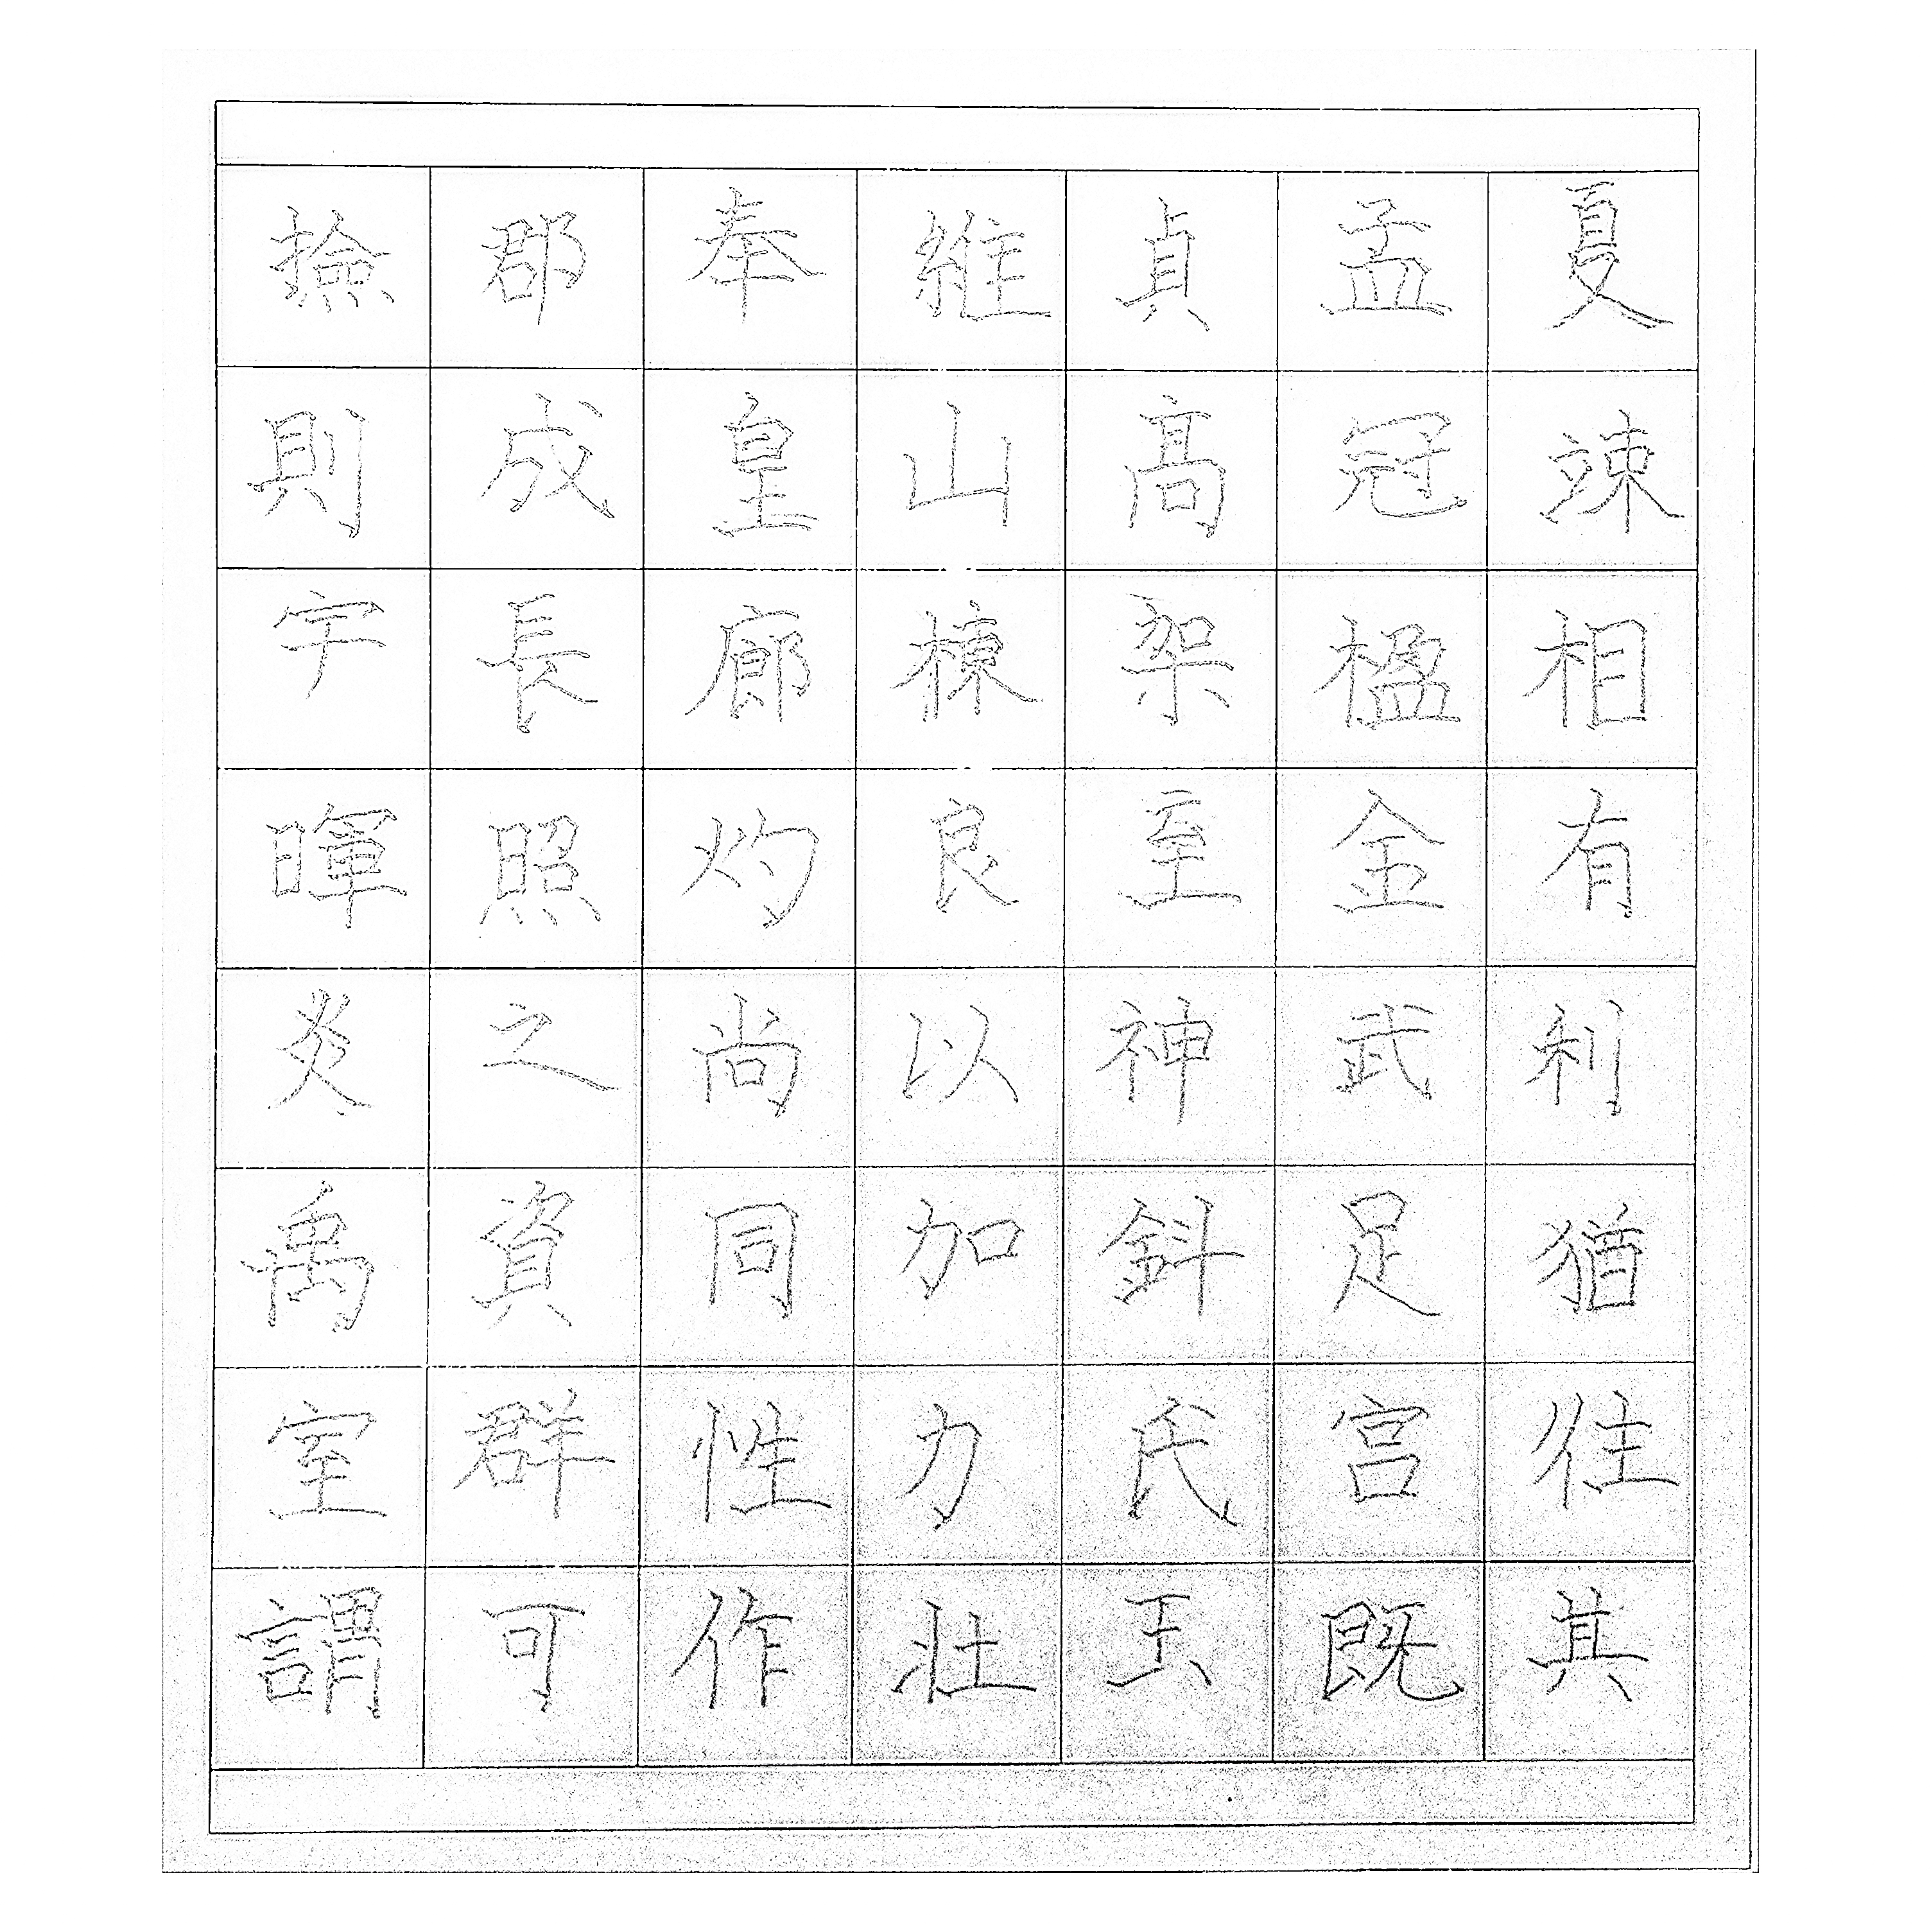 夏竦相有利猶往其
孟冠楹金武足宮既
貞高架至神鈄氏玉
維山棟良以加力壮
奉皇廊灼尚同性作
郡成長照之資群可
撿則宇暉炎禹室謂